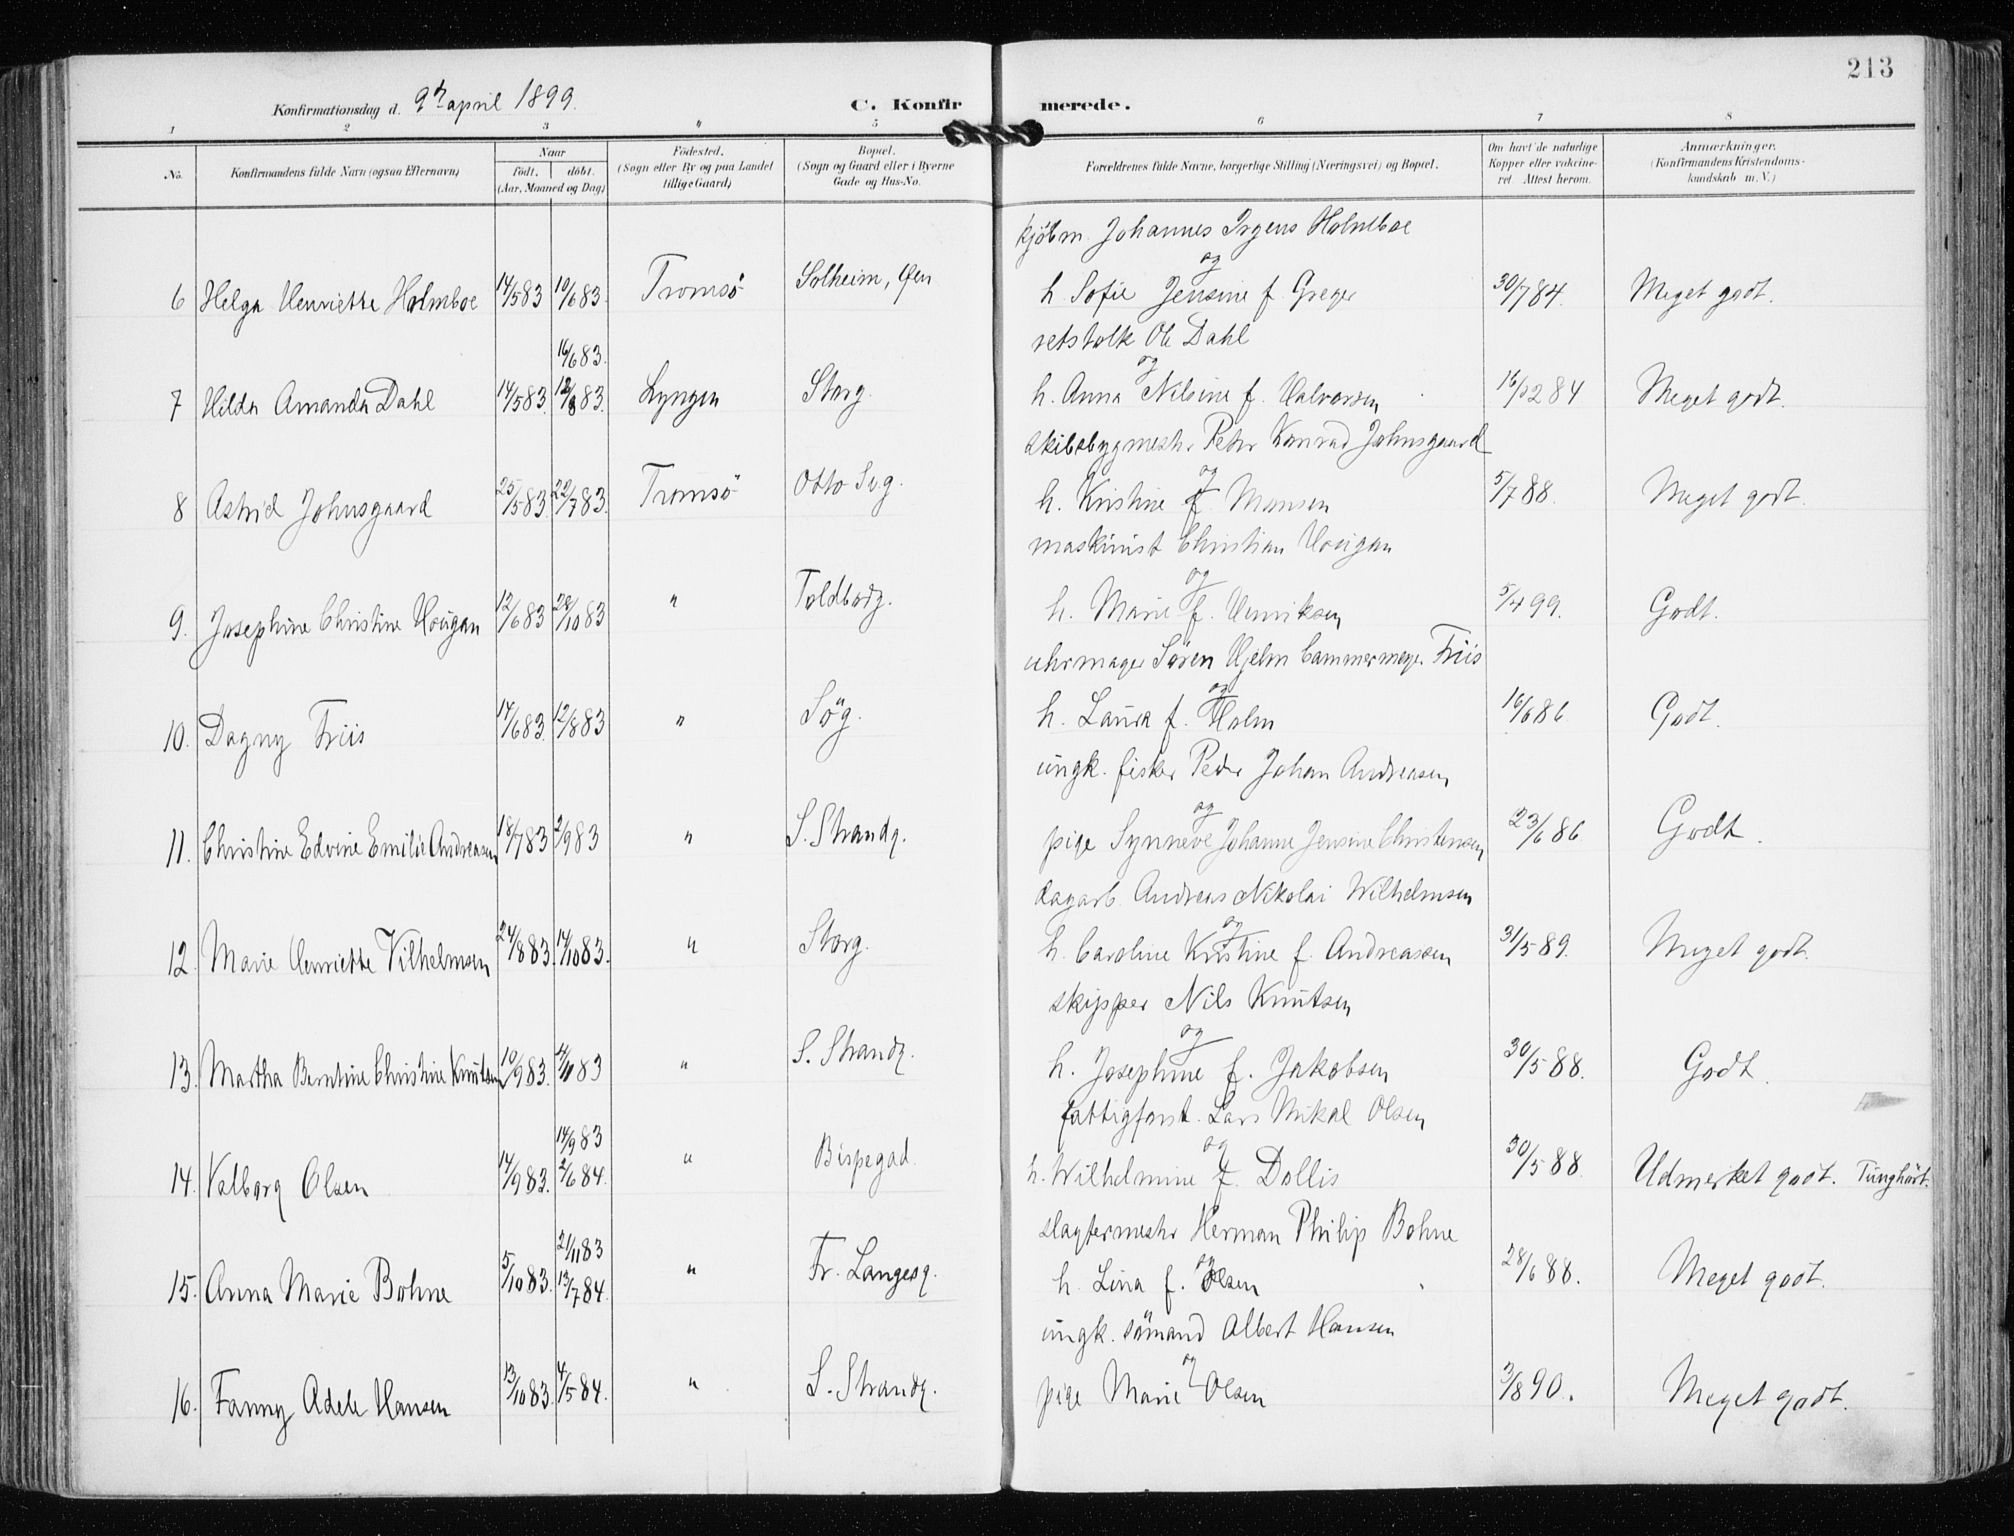 213
Konfirmationsdag d. 9de april 1899.
C. Konfirmerede.
1 2 3 " 5 6 7 8
No. Konfirmandens fulde Navn (ogsaa Efternavn) Naar født. døbt. (Aar, Maaned og Dag) Fødested. (Sogn eller By og paa Landet tillige Gaard) Bopæl. (Sogn og Gaard eller i Byerne Gade og Hus-No. Forældrenes fulde Navne, borgerlige Stilling (Næringsvei) og Bopæl. Om havt de naturlige Kopper eller vakcineret. Attest herom. Anmærkninger. (Konfirmandens Kristendomskundskab m. V.)
kjöbm. Johannes Irgens Holmboe
og
6 Helga Henriette Holmboe 14/5 83 10/6 83. Tromsö Solheim, Øen h. Sofie Jensine f. Greger 30/7 84. Meget godt.
16/6 83. retstolk Ole Dahl
og
7 Hilda Amanda Dahl 14/5 83. 12/8 83. Lyngen Storg. h. Anna Nilsine f. Halvorsen 84 Meget godt.
skibsbygmestr. Peter Konrad Johnsgaard
og
8 Astrid Johnsgaard 25/5 83. 22/7 83. Tromsö Otto Sv.g. h. Kristine f. Monsen 5/7 88. Meget godt.
maskinist Christian Hovigan
og
9. Josephine Christine Hovigan 12/6 83 28/10 83 " Toldbodg. h. Marie f. Henriksen 5/4 99. Godt.
uhrmager Sören Hjelm Cammermeyer Friis
og
10. Dagny Friis 14/6 83. 12/8 83 " Sög. h. Laura f. Holm 16/6 86 Godt.
ungk. fisker Peder Johan Andreasen
og
11. Christine Edvine Emilie Andreasen 18/7 83 2/9 83 " S. Strandg. pige Synneve Johanne Jensine Christensen 23/6 86 Godt.
dagarb. Andreas Nikolai Wilhelmsen
og
12. Marie Henriette Vilhelmsen 24/8 83. 14/10 83. " Storg. h. Caroline Kristine f. Andreassen 31/5 89. Meget godt.
skipper Nils Knutsen
og
13. Martha Berntine Christine Knutsen 10/9 83. 4/11 83 " S. Strandg. h. Josephine f. Jakobsen 30/5 88. Godt.
14/9 83 fattigforst. Lars Mikal Olsen
og
14. Valborg Olsen 14/9 83. 2/6 84. " Bispegad. h. Wilhelmine f. Dollis 30/5 88. Udmerket godt. Tunghört.
21/11 83 slagtermestr Herman Philip Bohne
og
15. Anna Marie Bohne 5/10 83. 13/7 84. " Fr. Langesg. h. Lina f. Olsen 28/6 88. Meget godt.
ungk. sömand Albert Hansen
og
16. Fanny Adele Hansen 13/10 83. 4/5 84. " S. Strandg. pige Marie Olsen 3/8 90. Meget godt.